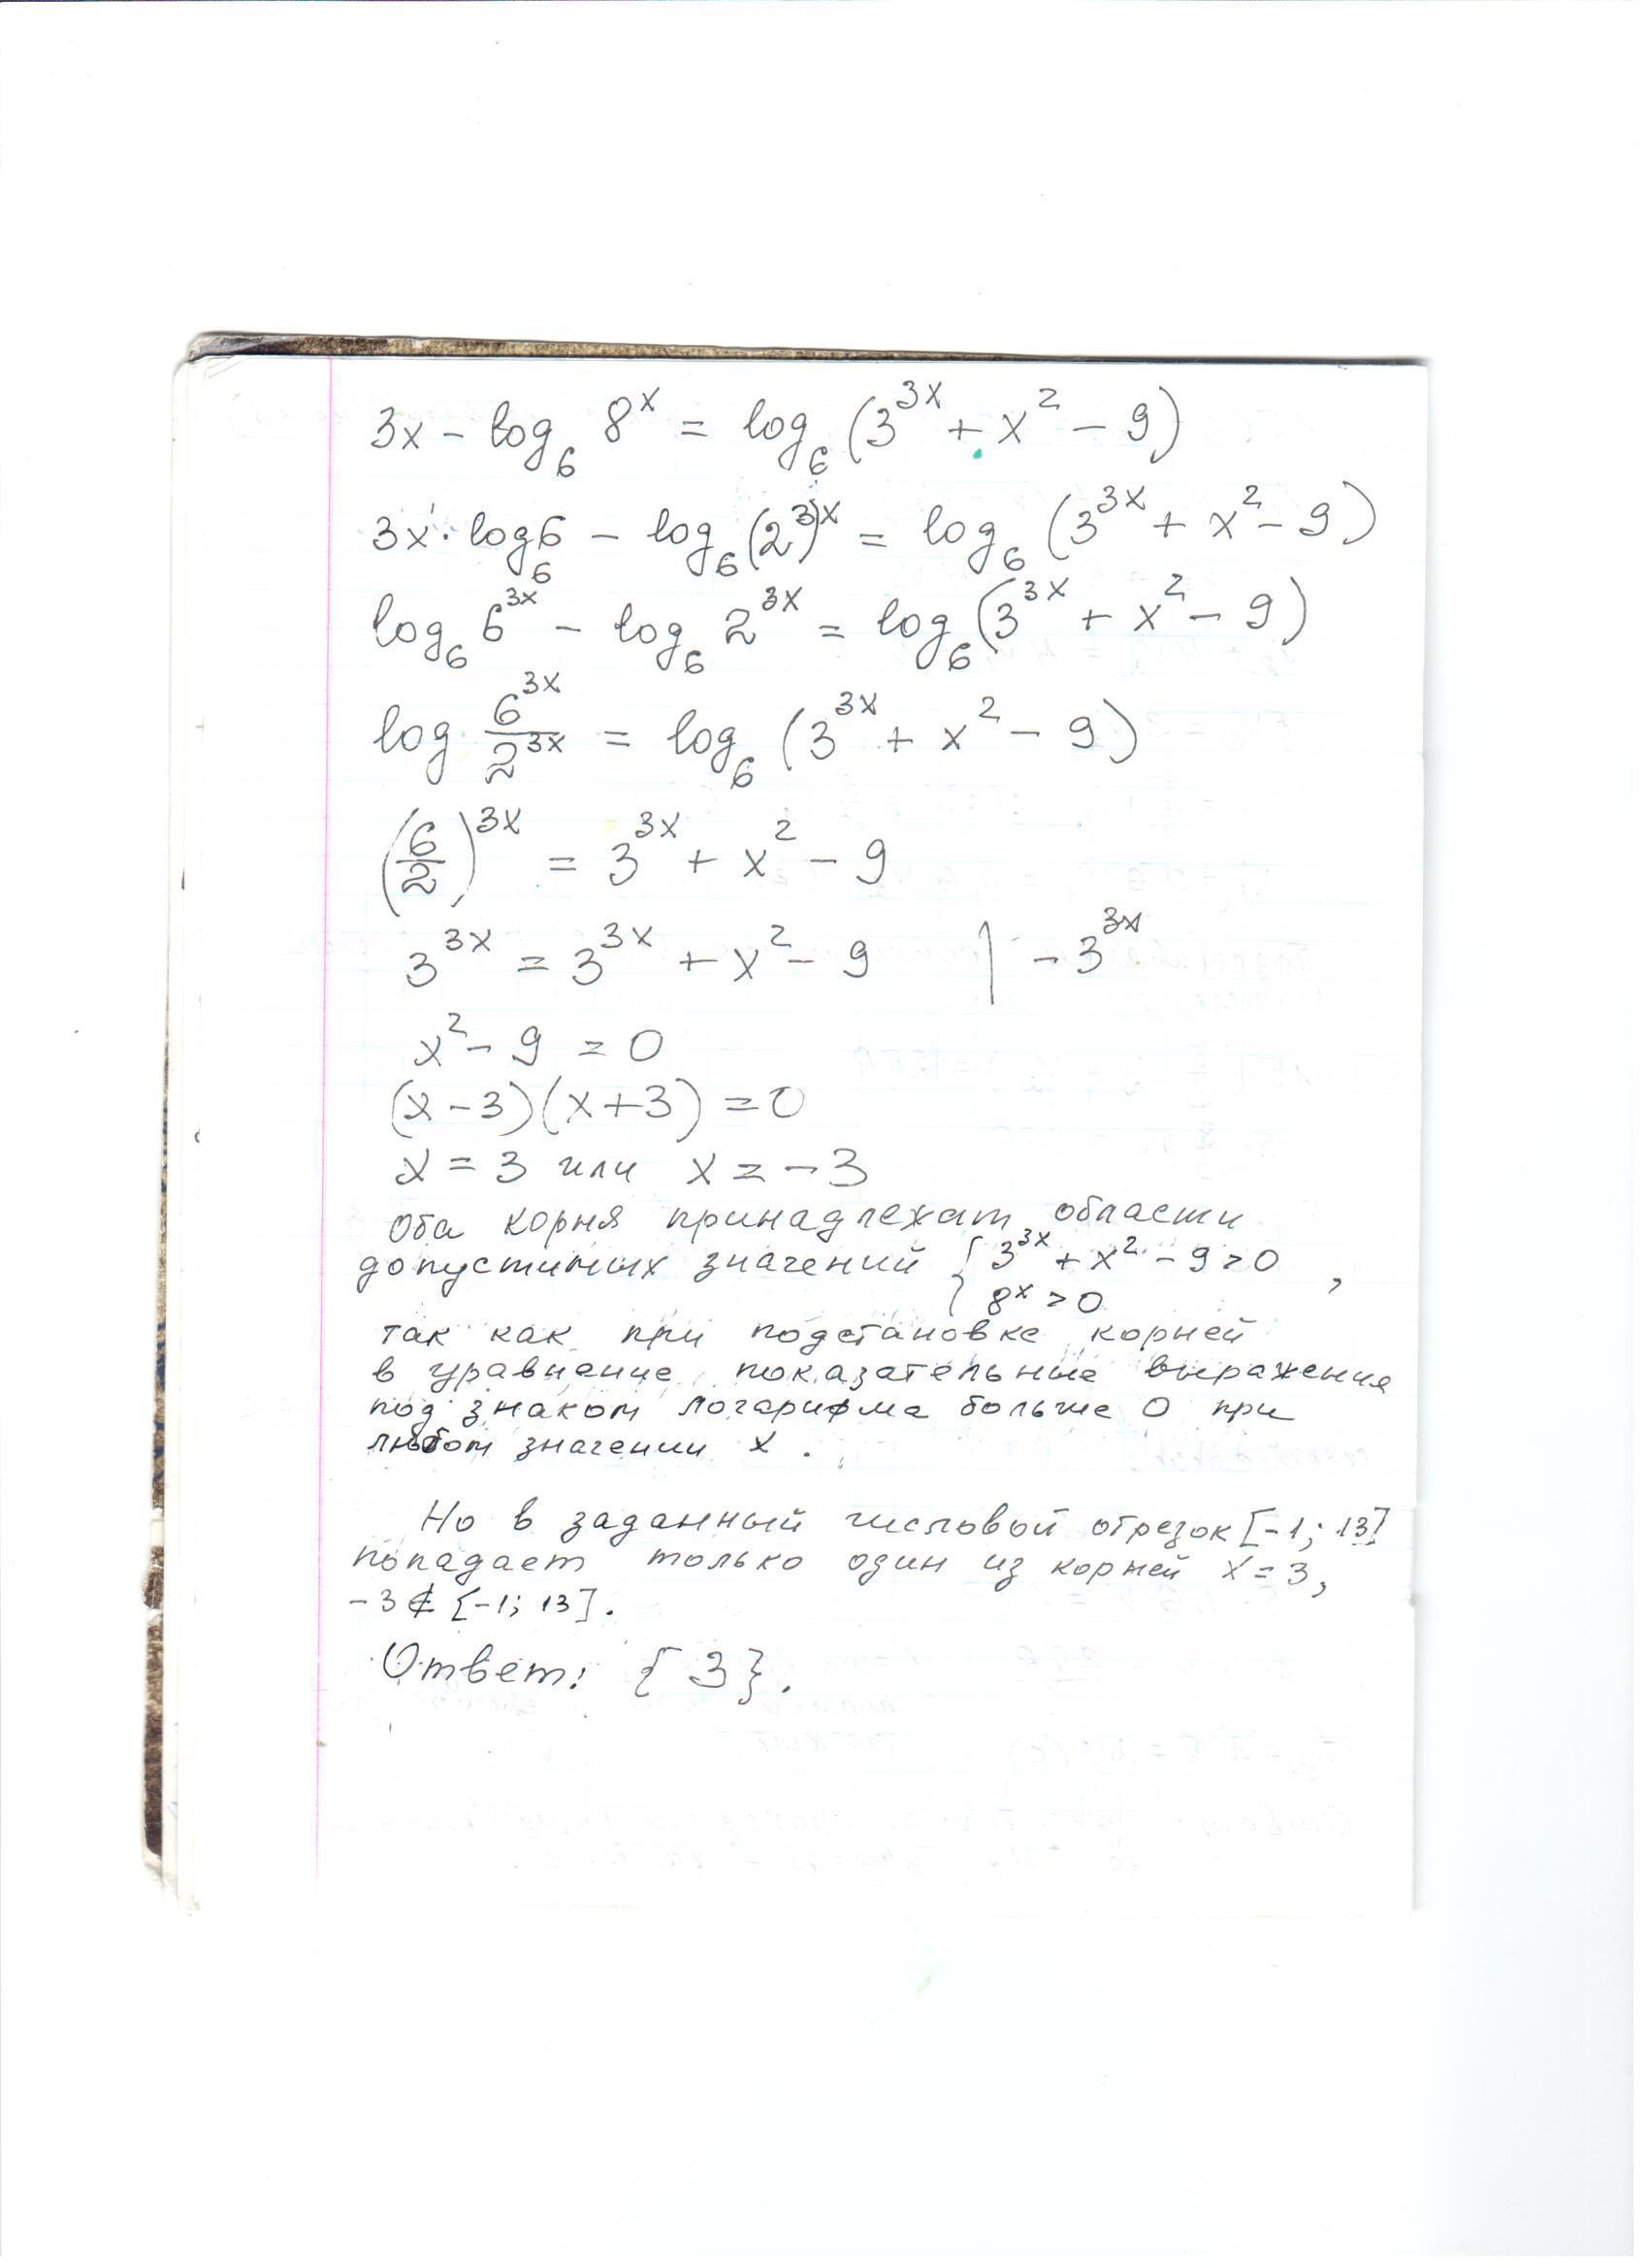 3x - log₆ 8ˣ = log₆ (3³ˣ + x² - 9)
3x · log₆6 - log₆(2³)ˣ = log₆ (3³ˣ + x² - 9)
log₆ 6³ˣ - log₆ 2³ˣ = log₆ (3³ˣ + x² - 9)
log 6³ˣ/2³ˣ = log₆ (3³ˣ + x² - 9)
(6/2)³ˣ = 3³ˣ + x² - 9
3³ˣ = 3³ˣ + x² - 9 | - 3³ˣ
x² - 9 = 0
(x - 3)(x + 3) = 0
x = 3 или x = - 3
Оба корня принадлежат области
допустимых значений { 3³ˣ + x² - 9 > 0 ,
8ˣ > 0
так как при подстановке корней
в уравнение показательные выражения
под знаком логарифма больше 0 при
любом значении x .
Но в заданный числовой отрезок [-1; 13]
попадает только один из корней x = 3,
- 3 ∉ [-1; 13].
Ответ: { 3 }.